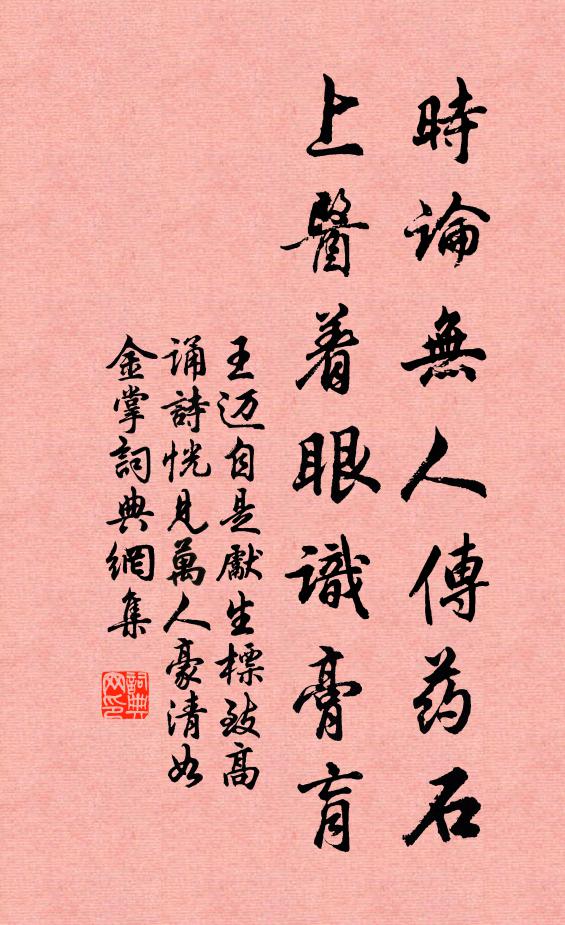 時論無人傳药石
上醫着眼識膏肓
王迈自是獻生標致高
诵詩恍見萬人豪清如
金掌詞典網集
詞典
网印